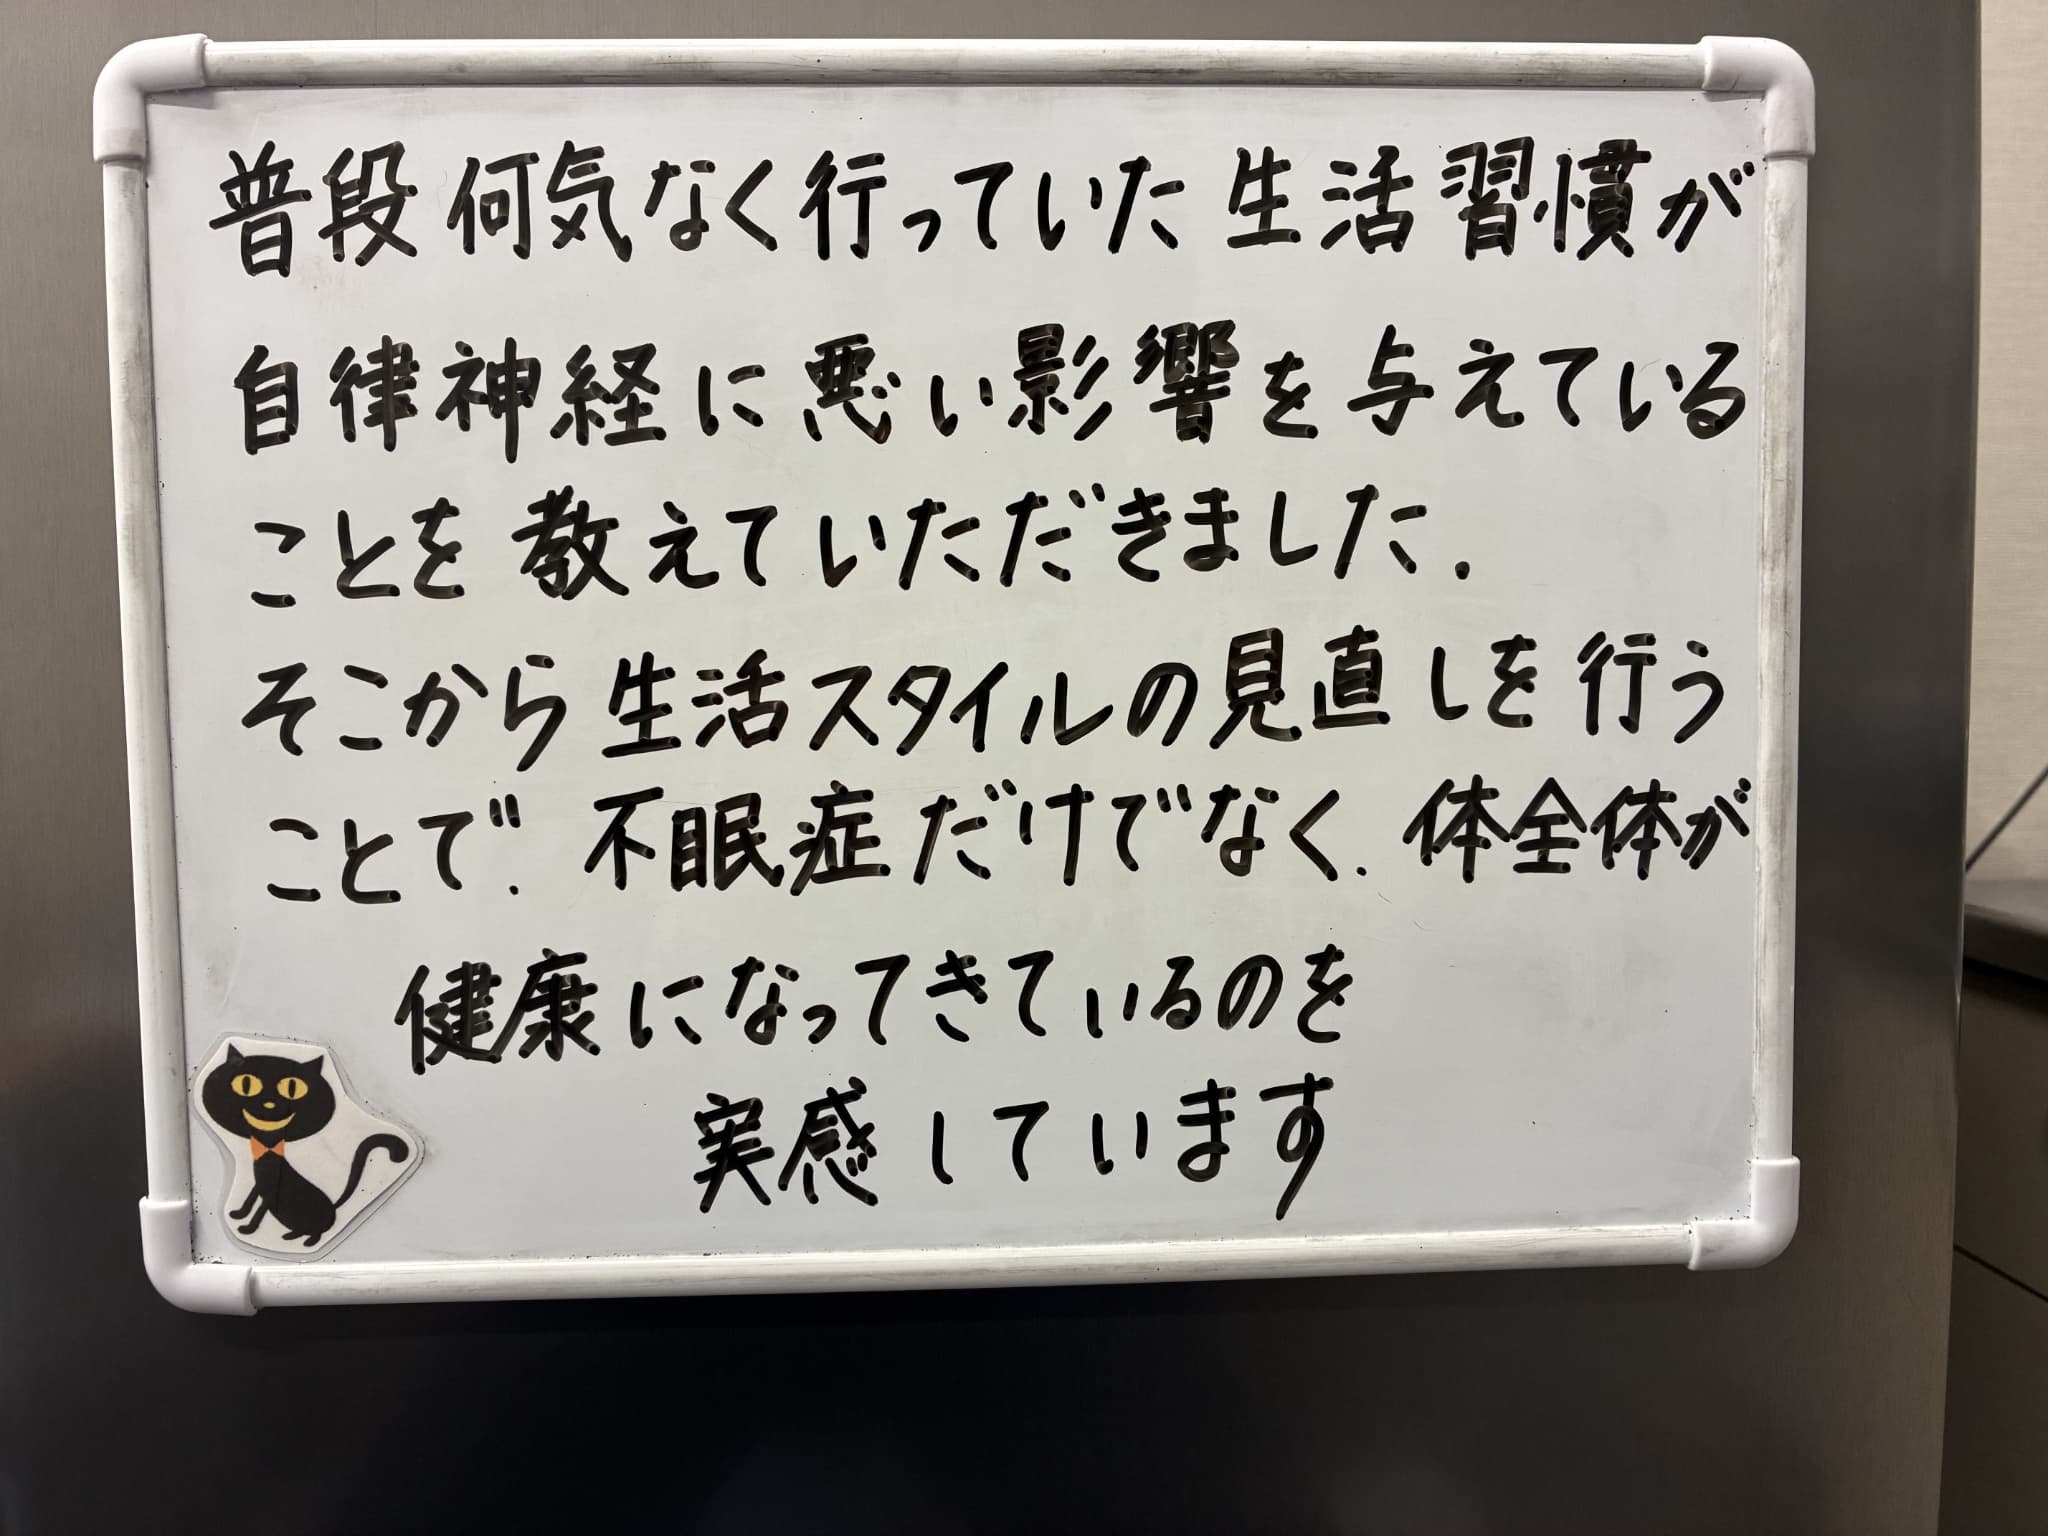 普段何気なく行っていた生活習慣が
自律神経に悪い影響を与えている
ことを教えていただきました.
そこから生活スタイルの見直しを行う
ことで.不眠症だけでなく.体全体が
健康になってきているのを
実感しています